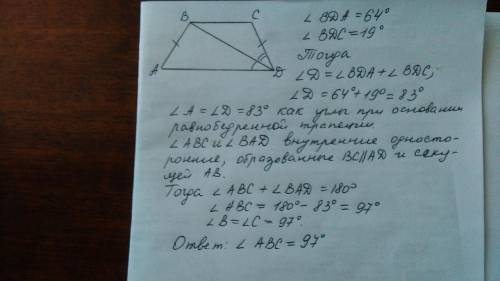 B
C
A
D
∠ BDA = 64°
∠ BDC = 19°
Тогда
∠D = ∠BDA + ∠BDC;
∠D = 64° + 19° = 83°
∠A = ∠D = 83° как углы при основании
равнобедренной трапеции.
∠ABC и ∠BAD внутренние односто-
ронние, образованные BC||AD и секу-
щей AB.
Тогда ∠ABC + ∠BAD = 180°
∠ABC = 180° - 83° = 97°
∠B = ∠C = 97°.
Ответ: ∠ ABC = 97°